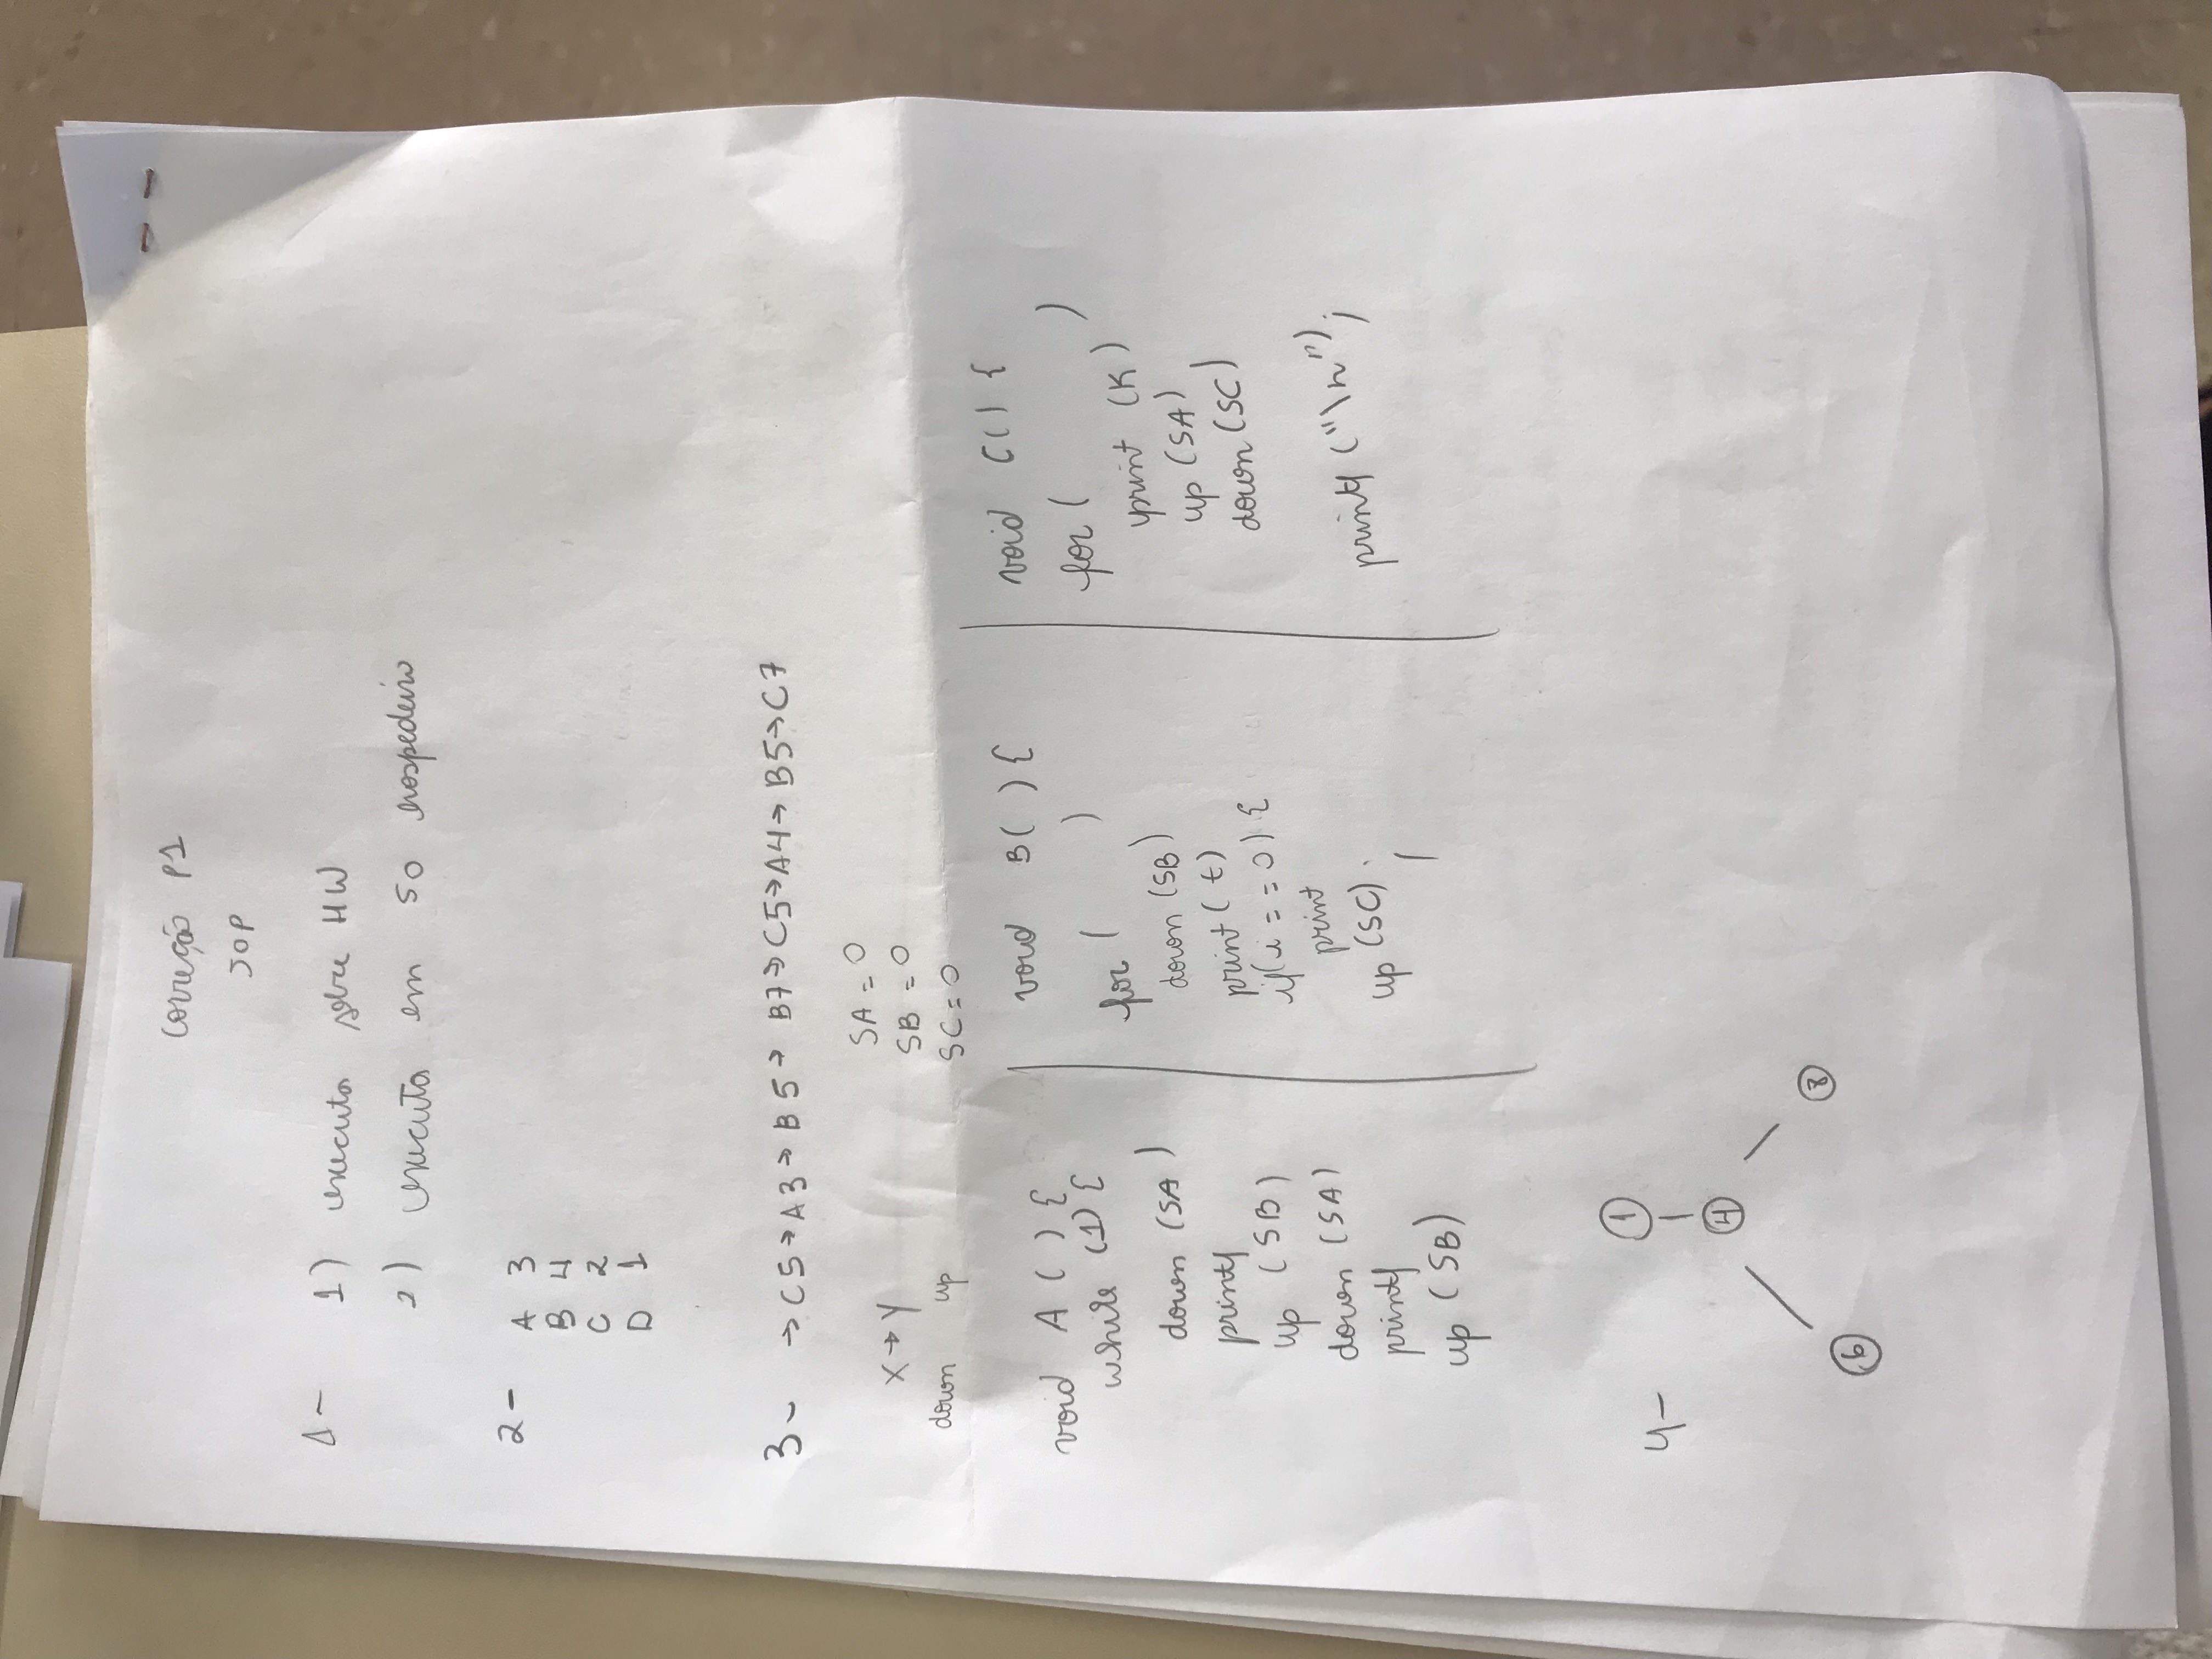 Correção P1
SOP
1- 1) executa sobre HW
2) executa em SO hospedeiro
2- A 3
B 4
C 2
D 1
3- → C5 → A3 → B5 → B7 → C5 → A4 → B5 → C7
X → Y
down up
SA = 0
SB = 0
SC = 0
void A ( ) {
while (1) {
down (SA)
printf
up (SB)
down (SA)
printf
up (SB)
void B( ) {
for ( )
down (SB)
print (t)
if(i == 0) {
print
up (SC)
void C() {
for ( )
print (K)
up (SA)
down (SC)
printf ("\n");
4- 1
4
6 8